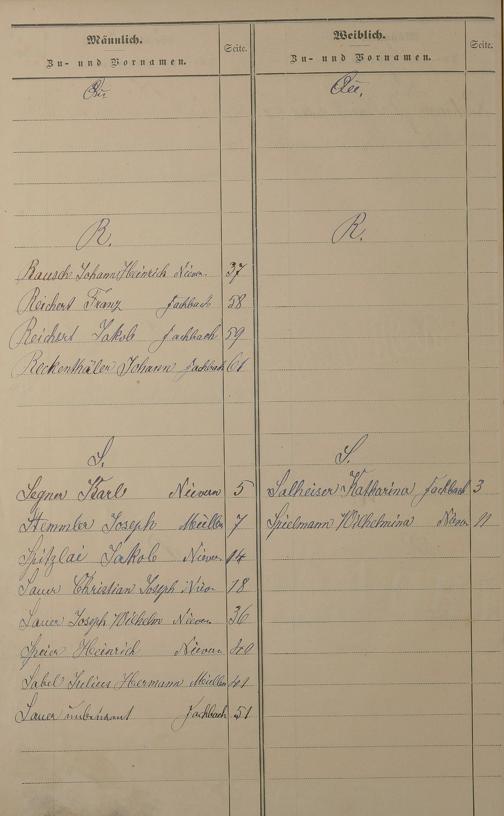 Männlich.
Zu- und Vornamen.
Seite.
Qu
R.
Rausch Johann Heinrich Niever. 37
Reichert Franz Fachbach 58
Reichert Jakob Fachbach 59
Reckenthäler Johann Fachbach 61
S.
Segner Karl Nievern 5
Stemmler Joseph Miellen 7
Spitzlai Jakob Niever. 14
Sauer Christian Joseph Niev. 18
Sauer Joseph Wilhelm Niever. 36
Speier Heinrich Niever. 40
Sabel Julius Hermann Miellen 41
Sauer unbenannt Fachbach 51
Weiblich.
Zu- und Vornamen.
Seite.
Qu.
R.
S.
Salheiser Katharina Fachbach 3
Spielmann Wilhelmina Niever. 11